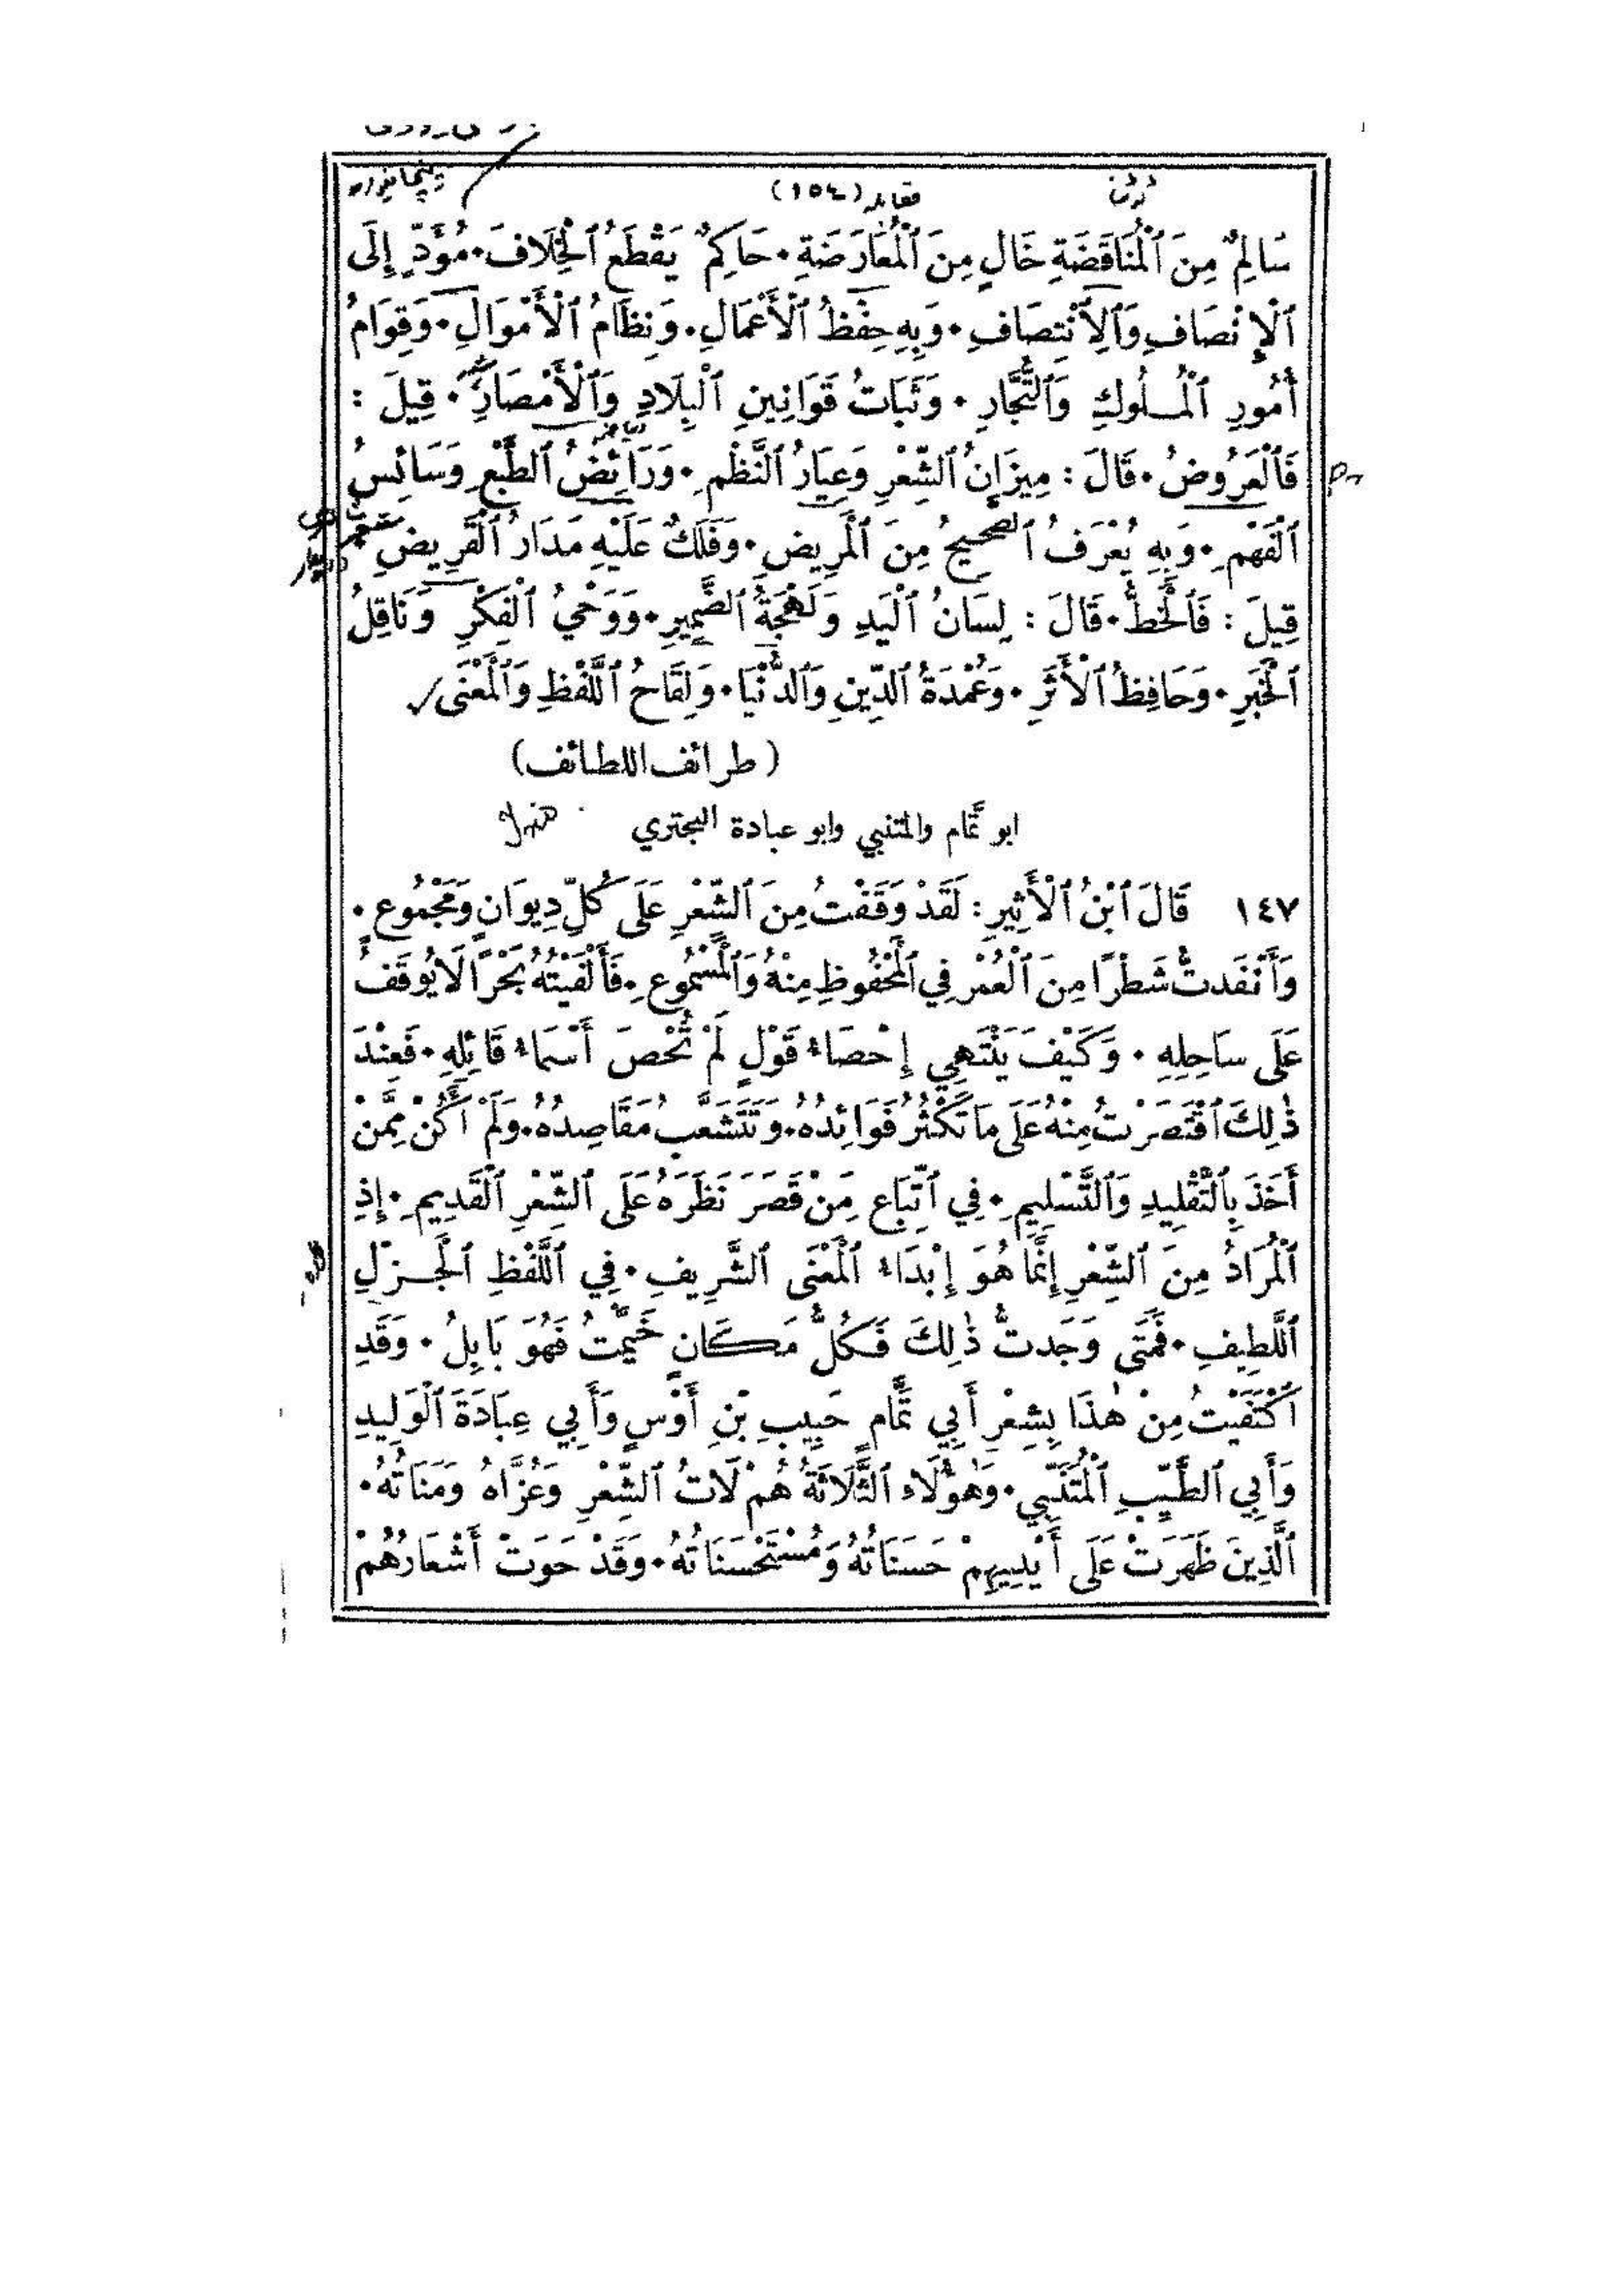 (١٥٤)
سَالِمٌ مِنَ ٱلْمُنَاقَضَةِ خَالٍ مِنَ ٱلْمُعَارَضَةِ. حَاكِمٌ يَقْطَعُ ٱلْخِلَافَ. مُؤَدٍّ إِلَى
ٱلْإِنْصَافِ وَٱلِٱنْتِصَافِ. وَبِهِ حِفْظُ ٱلْأَعْمَالِ. وَنِظَامُ ٱلْأَمْوَالِ. وَقِوَامُ
أُمُورِ ٱلْمُلُوكِ وَٱلتُّجَّارِ. وَثَبَاتُ قَوَانِينِ ٱلْبِلَادِ وَٱلْأَمْصَارِ. قِيلَ :
فَٱلْعَرُوضُ. قَالَ : مِيزَانُ ٱلشِّعْرِ وَعِيَارُ ٱلنَّظْمِ. وَرَائِضُ ٱلطَّبْعِ وَسَائِسُ
ٱلْفَهْمِ. وَبِهِ يُعْرَفُ ٱلصَّحِيحُ مِنَ ٱلْمَرِيضِ. وَفَلَكٌ عَلَيْهِ مَدَارُ ٱلْقَرِيضِ.
قِيلَ : فَٱلْخَطُّ. قَالَ : لِسَانُ ٱلْيَدِ وَلَهْجَةُ ٱلضَّمِيرِ. وَوَحْيُ ٱلْفِكْرِ وَنَاقِلُ
ٱلْخَبَرِ. وَحَافِظُ ٱلْأَثَرِ. وَعُمْدَةُ ٱلدِّينِ وَٱلدُّنْيَا. وَلِقَاحُ ٱللَّفْظِ وَٱلْمَعْنَى
(طرائف اللطائف)
ابو تَّمام والمتنبي وابو عبادة البحتري
١٤٧ قَالَ ٱبْنُ ٱلْأَثِيرِ : لَقَدْ وَقَفْتُ مِنَ ٱلشِّعْرِ عَلَى كُلِّ دِيوَانٍ وَمَجْمُوعٍ.
وَأَنْفَدتُّ شَطْرًا مِنَ ٱلْعُمْرِ فِي ٱلْمَحْفُوظِ مِنْهُ وَٱلْمَسْمُوعِ. فَأَلْفَيْتُهُ بَحْرًا لَا يُوقَفُ
عَلَى سَاحِلِهِ. وَكَيْفَ يَنْتَهِي إِحْصَاءُ قَوْلٍ لَمْ تُحْصَ أَسْمَاءُ قَائِلِهِ. فَعِنْدَ
ذٰلِكَ ٱقْتَصَرْتُ مِنْهُ عَلَى مَا تَكْثُرُ فَوَائِدُهُ. وَتَتَشَعَّبُ مَقَاصِدُهُ. وَلَمْ أَكُنْ مِمَّنْ
أَخَذَ بِٱلتَّقْلِيدِ وَٱلتَّسْلِيمِ. فِي ٱتِّبَاعِ مَنْ قَصَرَ نَظَرَهُ عَلَى ٱلشِّعْرِ ٱلْقَدِيمِ. إِذِ
ٱلْمُرَادُ مِنَ ٱلشِّعْرِ إِنَّمَا هُوَ إِبْدَاءُ ٱلْمَعْنَى ٱلشَّرِيفِ. فِي ٱللَّفْظِ ٱلْجَزْلِ
ٱللَّطِيفِ. فَمَتَى وَجَدتُّ ذٰلِكَ فَكُلُّ مَكَانٍ خَيَّمْتُ فَهُوَ بَابِلُ. وَقَدِ
ٱكْتَفَيْتُ مِنْ هٰذَا بِشِعْرِ أَبِي تَمَّامٍ حَبِيبِ بْنِ أَوْسٍ وَأَبِي عِبَادَةَ ٱلْوَلِيدِ
وَأَبِي ٱلطَّيِّبِ ٱلْمُتَنَبِّي. وَهٰؤُلَاءِ ٱلثَّلَاثَةُ هُمْ لَاتُ ٱلشِّعْرِ وَعُزَّاهُ وَمَنَاتُهُ.
ٱلَّذِينَ ظَهَرَتْ عَلَى أَيْدِيهِمْ حَسَنَاتُهُ وَمُسْتَحْسَنَاتُهُ. وَقَدْ حَوَتْ أَشْعَارُهُمْ